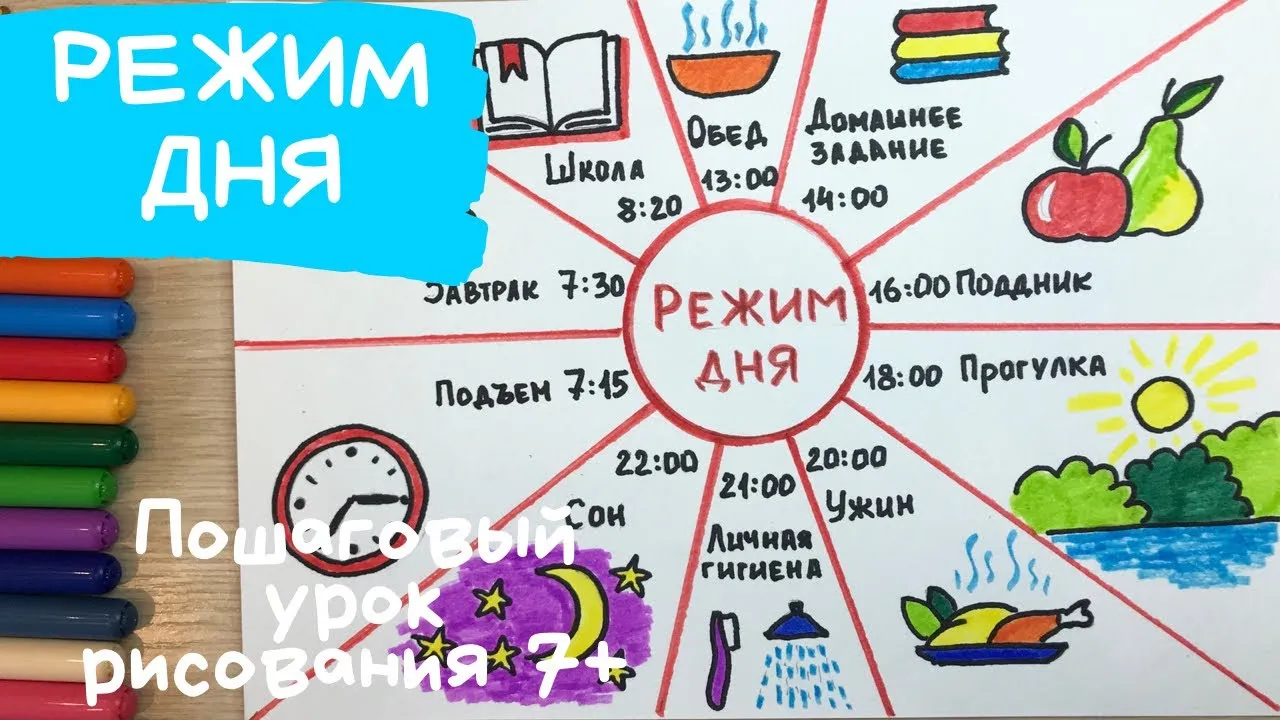 РЕЖИМ
ДНЯ
Школа
8:20
Обед
13:00
Домашнее
задание
14:00
Завтрак 7:30
РЕЖИМ
ДНЯ
16:00 Поддник
Подъем 7:15
18:00 Прогулка
22:00
Сон
21:00
Личная
гигиена
20:00
Ужин
Пошаговый
урок
рисования 7+